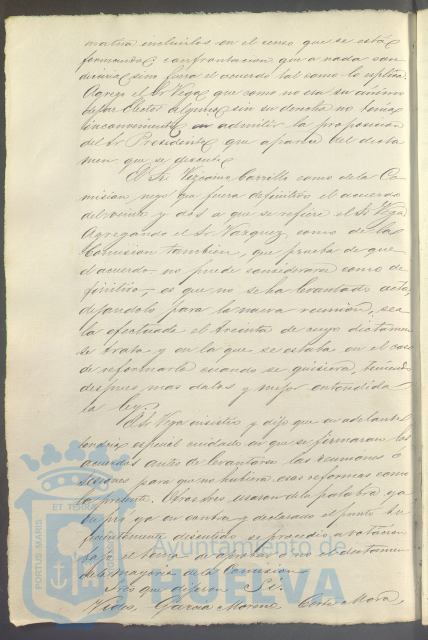 matriz incluirlos en el censo que se está
formando, confrontacion que a nada con
duciria sin fuera el acuerdo tal como lo esplica.
Agregó el Sr Vega que como no era su ánimo
dejar Elector alguno sin su derecho no tenia
inconveniente en admitir la proposicion
del Sr Presidente que aparece del dicta
men que se discute
El Sr. Vizcaino Carrillo como de la Co
mision, negó que fuera definitivo el acuerdo
del veinte y dos a que se refiere el Sr Vega
Agregando el Sr Vazquez, como de la
Comision tambien, que prueba de que
el acuerdo no puede considerarse como de
finitivo, es que no se ha levantado acta,
dejandolo para la nueva reunion, sea
la efectuada el treinta de cuyo dictamen
se trata y en la que se estaba en el caso
de reformarlo cuando se quisiera, teniendo
despues mas datos y mejor entendida
la ley.
El Sr Vega insistió y dijo que en adelante
tendria especial cuidado en que se firmaran los
acuerdos antes de levantarse las reuniones o
sesiones para que no hubiera esas reformas como
la presente. Otros Sres usaron de la palabra ya
en pró ya en contra y declarado el punto su
ficientemente discutido se procedió a votacion
bajo el tema de aprobar o no el dictamen
de la mayoria de la Comision
Sres que dijeron Sí.
Garcia Moreno Corte Mora
PORTUS MARIS
ET TERRÆ
Ayuntamiento de
HUELVA